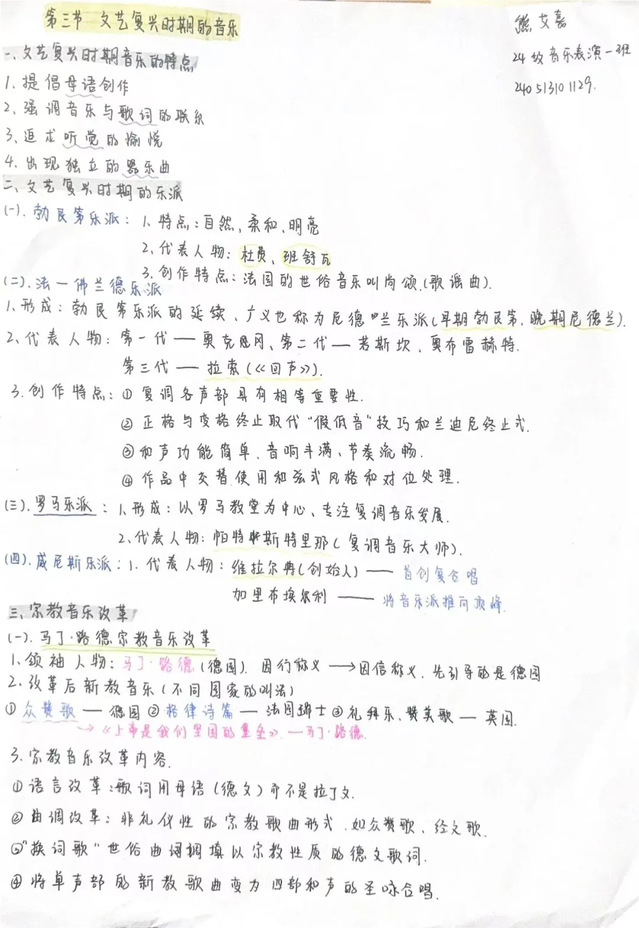 第三节 文艺复兴时期的音乐
熊艾嘉
24级音乐表演一班
240513101129.
一、文艺复兴时期音乐的特点
1. 提倡母语创作
2、强调音乐与歌词的联系
3、追求听觉的愉悦
4. 出现独立的器乐曲
二、文艺复兴时期的乐派
(一). 勃艮第乐派: 1. 特点: 自然、柔和、明亮
2、代表人物: 杜费、班舒瓦
3. 创作特点: 法国的世俗音乐叫尚颂.(歌谣曲).
(二). 法一佛兰德乐派
1. 形成: 勃艮第乐派的延续、广义也称为尼德兰乐派(早期勃艮第, 晚期尼德兰).
2、代表人物: 第一代 — 奥克冈、第二代 — 若斯坎、奥布雷赫特.
第三代 — 拉索(《回声》).
3. 创作特点: ① 复调各声部具有相等重要性.
② 正格与变格终止取代"假低音"技巧和兰迪尼终止式.
③ 和声功能简单、音响丰满、节奏流畅.
④ 作品中交替使用和弦式风格和对位处理.
(三). 罗马乐派: 1. 形成: 以罗马教堂为中心、专注复调音乐发展.
2、代表人物: 帕特斯特里那(复调音乐大师).
(四). 威尼斯乐派: 1. 代表人物: 维拉尔典(创始人) — 首创复合唱
加里布埃尔利 — 将音乐派推向顶峰.
三. 宗教音乐改革
(一). 马丁·路德宗教音乐改革
1. 领袖人物: 马丁·路德(德国). 因行称义 → 因信称义, 先引导的是德国
2. 改革后新教音乐(不同国家的叫法)
① 众赞歌 — 德国 ② 格律诗篇 — 法国瑞士 ③ 礼拜乐、赞美歌 — 英国.
→《上帝是我们坚固的堡垒》. —马丁·路德.
3. 宗教音乐改革内容.
① 语言改革: 歌词用母语(德文)而不是拉丁文.
② 曲调改革: 非礼仪性的宗教歌曲形式. 如众赞歌、经文歌.
③"换词歌"世俗曲调填以宗教性质的德文歌词.
④ 将单声部的新教歌曲变为四部和声的圣咏合唱.